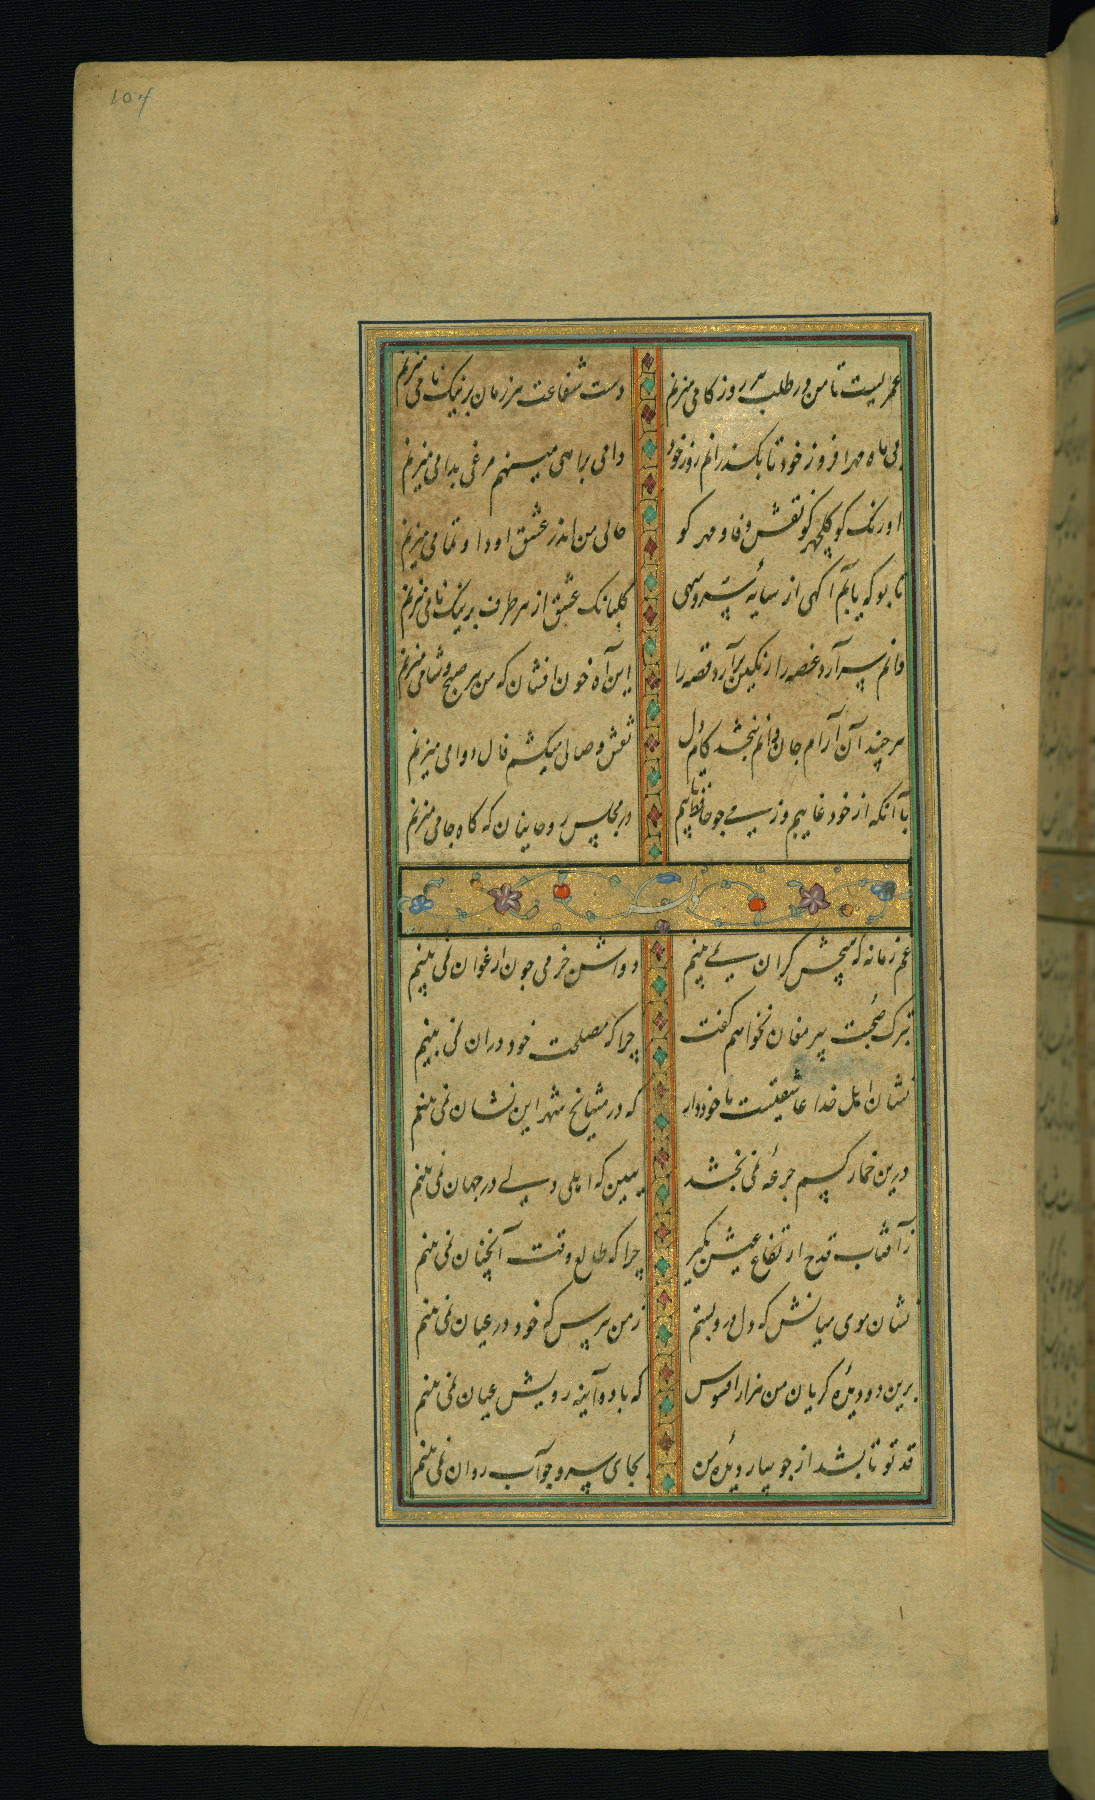 104
عمریست تا من در طلب هر روز کامی میزنم
دست شفاعت هر زمان بر نیک نامی میزنم
بی ماه مهر افروز خود تا بگذرانم روز خود
دامی براهی مینهم مرغی بدامی میزنم
اورنگ کو گلچهر کو نقش وفا و مهر کو
حالی من اندر عشق او داو تمامی میزنم
تا بو که یابم آگهی از سایهٔ سرو سهی
گلبانک عشق از هر طرف بر نیک نامی میزنم
دانم سر آرد غصه را رنگین برآرد قصه را
این آه خون افشان که من هر صبح و شامی میزنم
هر چند آن آرام جان دانم نبخشد کام دل
نقش وصالی میکشم فال دوامی میزنم
با آنکه از خود غایبم وز می چو حافظ تایبم
در مجلس روحانیان که گاه جامی میزنم
غم زمانه که هیچش کران نمی بینم
دواش جز می چون ارغوان نمی بینم
بترک صحبت پیر مغان نخواهم گفت
چرا که مصلحت خود در آن نمی بینم
نشان اهل خدا عاشقیست با خود دار
که در مشایخ شهر این نشان نمی بینم
درین خمار کسم جرعهٔ نمی بخشد
ببین که اهل دلی در جهان نمی بینم
ز آفتاب قدح ارتفاع عیش بگیر
چرا که طالع وقت آنچنان نمی بینم
نشان موی میانش که دل درو بستم
ز من مپرس که خود در میان نمی بینم
برین دو دیدهٔ گریان من هزار افسوس
که با دو آینه رویش عیان نمی بینم
قد تو تا بشد از جویبار دیدهٔ من
بجای سرو جز آب روان نمی بینم